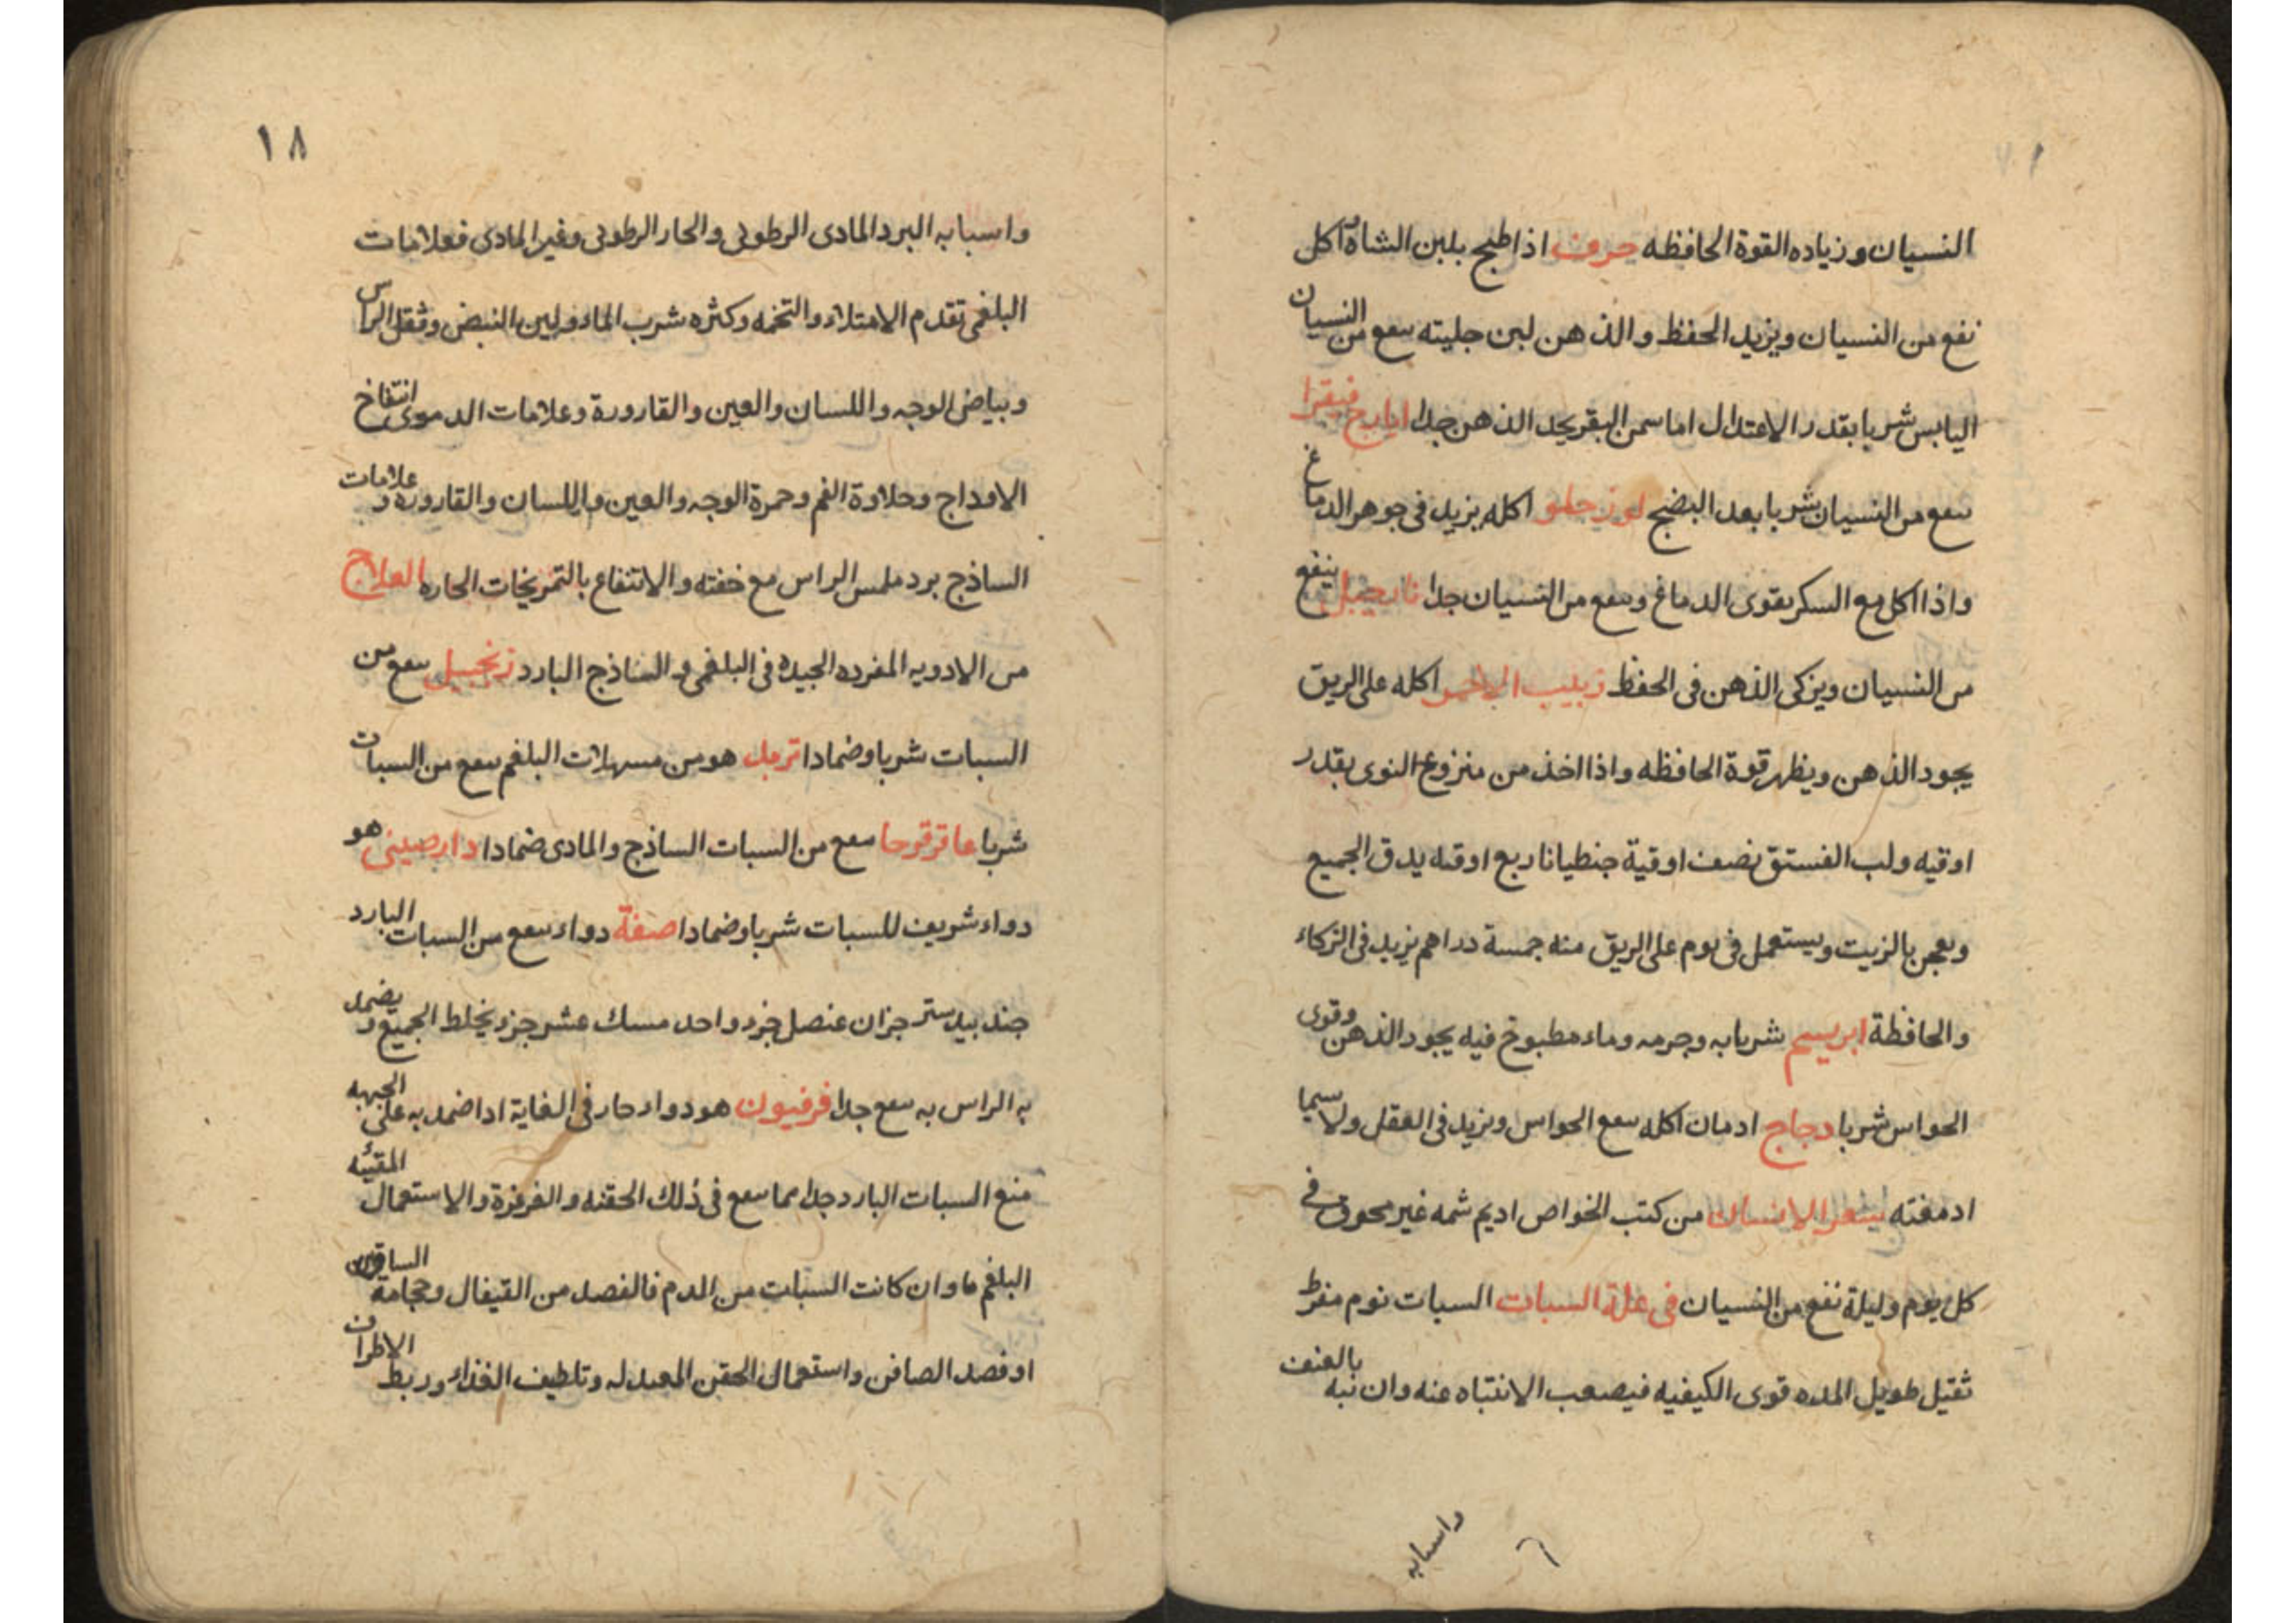 النسيان وزياده القوة الحافظه حرف اذا طبخ بلبن الشاة واكل
نفع من النسيان ويزيد الحفظ والذهن لبن جليته سفع من النسيان
اليابس شربا بقدر الاعتدال اما سمن البقر يحد الذهن جدا ايارج فيقرا
سفع من النسيان شربا بعد النضج لوز حلو اكله يزيد فى جوهر الدماغ
واذا اكل مع السكر يقوى الدماغ وسفع من النسيان جدا نارجيل ينفع
من النسيان ويزكى الذهن فى الحفظ زبيب الاحمر اكله على الريق
يجود الذهن ويظهر قوة الحافظه واذا اخذ من منزوع النوى بقدر
اوقيه ولب الفستق نصف اوقية جنطيانا ربع اوقيه يدق الجميع
ويعجن بالزيت ويستعمل فى يوم على الريق منه خمسة دراهم يزيد فى الزكاء
والحافظة ابريسم شربا به وجرمه وماء مطبوخ فيه يجود الذهن وقوى
الحواس شربا دجاج ادمان اكله سفع الحواس ويزيد فى العقل ولا سيما
ادمغته شعر الانسان من كتب الخواص اديم شمه غير محروق فى
كل يوم وليلة نفع من النسيان فى علة السبات السبات نوم مفرط
ثقيل طويل المده قوى الكيفيه فيصعب الانتباه عنه وان نبه بالعنف
واسبابه
١٨
واسبابه البرد المادى الرطوبى والحار الرطوبى وغير المادى فعلامات
البلغمى تقدم الامتلاء والتخمه وكثره شرب الماء ولين النبض وثقل الراس
وبياض الوجه واللسان والعين والقارورة وعلامات الدموى انتفاخ
الاوداج وحلاوة الفم وحمرة الوجه والعين واللسان والقاروره وعلامات
الساذج برد ملمس الراس مع خفته والانتفاع بالتمزيخات الحاره العلاج
من الادويه المفرده الجيده فى البلغمى والساذج البارد زنجبيل سفع من
السبات شربا وضمادا تربد هو من مسهلات البلغم سفع من السبات
شربا عاقرقرحا سفع من السبات الساذج والمادى ضمادا دارصينى هو
دواء شريف للسبات شربا وضمادا صفة دواء سفع من السبات البارد
جند بيدستر جزان عنصل جزء واحد مسك عشر جزء يخلط الجميع ويضمد
به الراس به سفع جدا فرفيون هو دواء حار فى الغاية اذا ضمد به على الجبهه
منع السبات البارد جدا مما سفع فى ذلك الحقنه والغرغرة والاستعمال المقيئه
البلغم ما وان كانت السبات من الدم فالفصد من القيفال وحجامة الساقين
او فصد الصافن واستعمال الحقن المعدله وتلطيف الغذاء وربط الاطراف